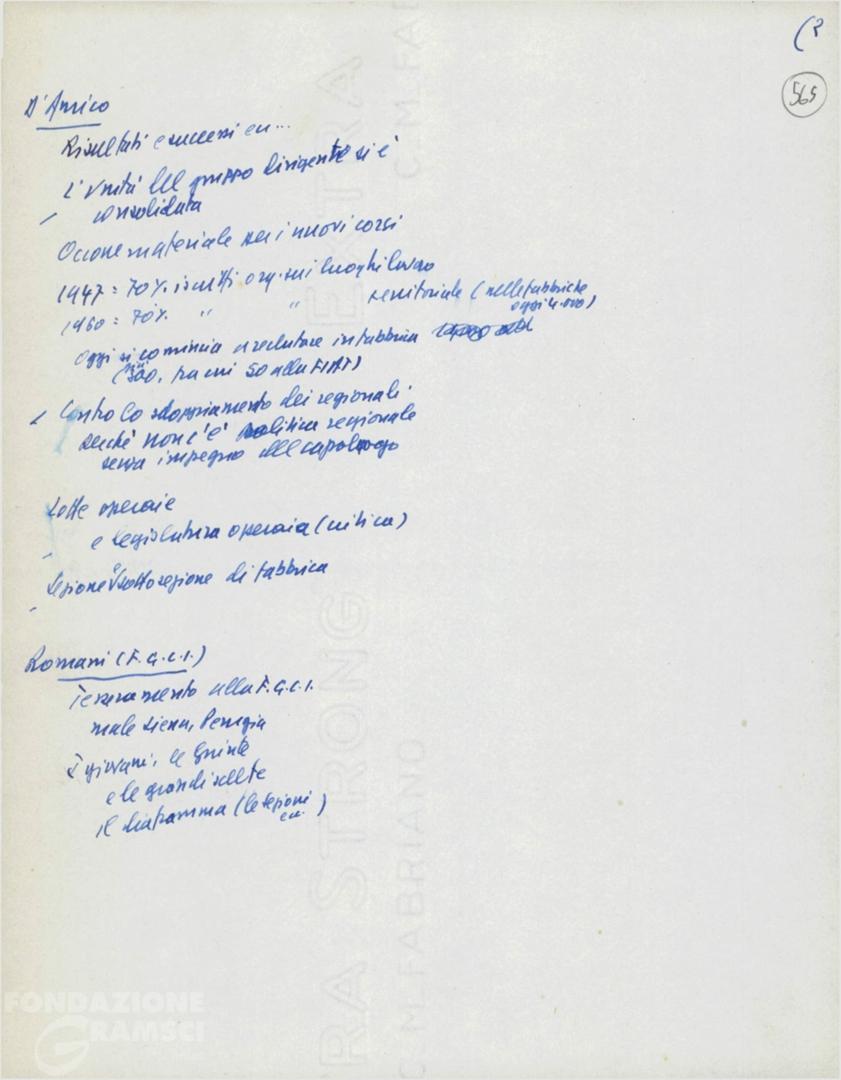 (2
565
D'Amico
Risultati e successi ecc...
L'unità del gruppo dirigente si è
consolidata
Occone materiale sui nuovi corsi
1947 = 70% iscritti org. sui luoghi lavoro
1960 = 70% " " territoriale (nelle fabbriche
oggi 4.000)
Oggi si comincia a reclutare in fabbrica
(300, tra cui 50 alla FIAT)
Contro lo sdoppiamento dei regionali
perché non c'è politica regionale
senza impegno del capoluogo
Lotte operaie
e legislatura operaia (critica)
Sezione e sottosezione di fabbrica
Romani (F.G.C.I.)
Tesseramento alla F.G.C.I.
male Siena, Perugia
I giovani, le
e le grandi scelte
il diaframma (le sezioni
ecc. )
FONDAZIONE
GRAMSCI
EXTRA STRONG
C.M. FABRIANO